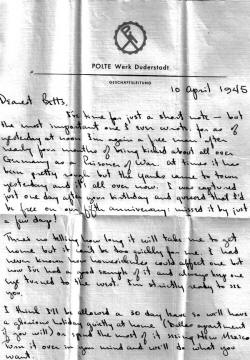 POLTE Werk Duderstadt
GESCHÄFTSLEITUNG
10 April 1945
Dearest Betts,
I've time for just a short note - but
the most important one I ever wrote. for as of
yesterday at noon I'm again a free man after
nearly four months of being kicked about all over
Germany as a Prisoner of War. at times it has
been pretty rough but the Yanks came to town
yesterday and it's all over now. I was captured
just one day after your birthday and guessed that I'd
be free on our fifth anniversary. missed it by just
a few days!
There's no telling how long it will take me to get
home. but it can't be too quickly for me. I had
never known how homesickness could affect one but
now I've had a good sample of it and
turned to the west. I'm strictly ready to see
you.
I think I'll be allowed a 30 day leave so we'll have
a glorious holiday quietly at home (Dallas apartment
if you will) or spend most of it seeing New Mexico
Turn it over in your mind and we'll do what you
want.